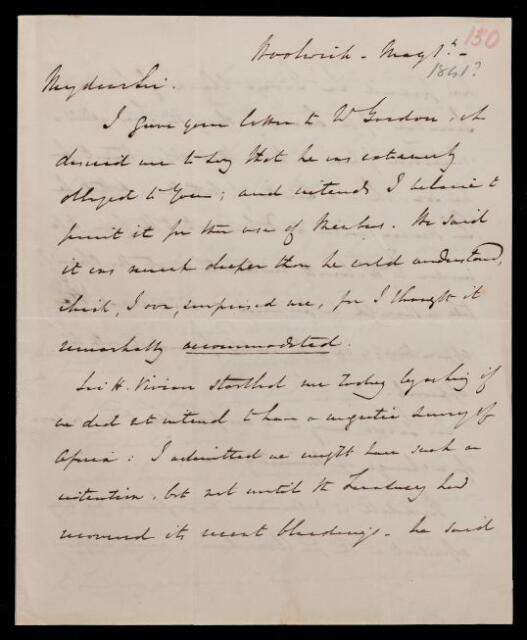 150
Woolwich - May 1st -
1841?
My dear Sir.
I gave your letter to W Gordon; who
desired me to say that he was extremely
obliged to you; and intends I believe to
print it for the use of Members. He said
it was much deeper than he could understand,
which, I own, surprised me, for I thought it
remarkably accommodated.
Sir H. Vivian startled me today by asking if
we did not intend to have a magnetic survey of
Africa: I admitted we might have such an
intention, but not until the Treasury had
recovered its recent bleedings - he said